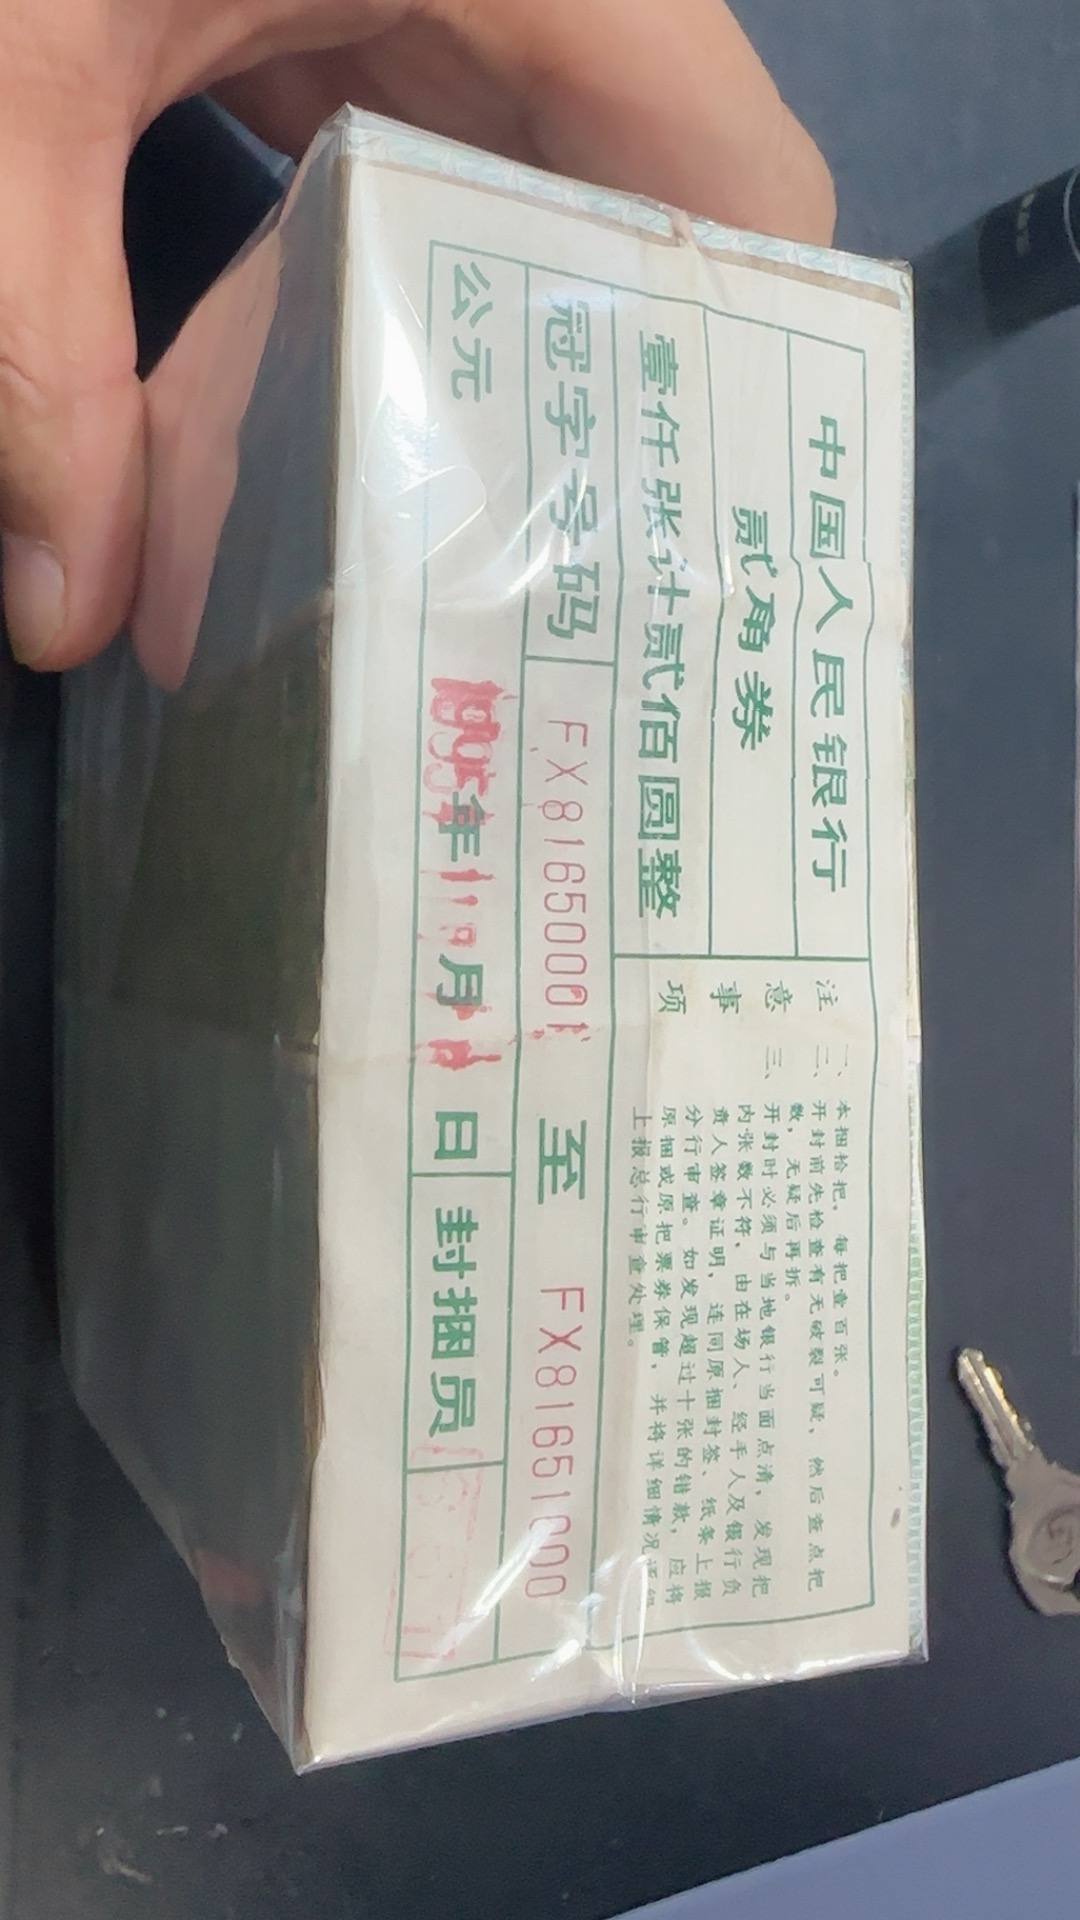 中国人民银行
贰角券
壹仟张计贰佰圆整
注意事项
一、本捆拾把，每把壹百张。
二、开封前先检查有无破裂可疑，然后查点把
数，无疑后再拆。
三、开封时必须与当地银行当面点清，发现把
内张数不符，由在场人、经手人及银行负
责人签章证明，连同原捆封签、纸条上报
分行审查。如发现超过十张的错款，应将
原捆或原把票券保管，并将详细情况
上报总行审查处理。
冠字号码 FX8165001 至 FX81651000
公元 年 月 日 封捆员